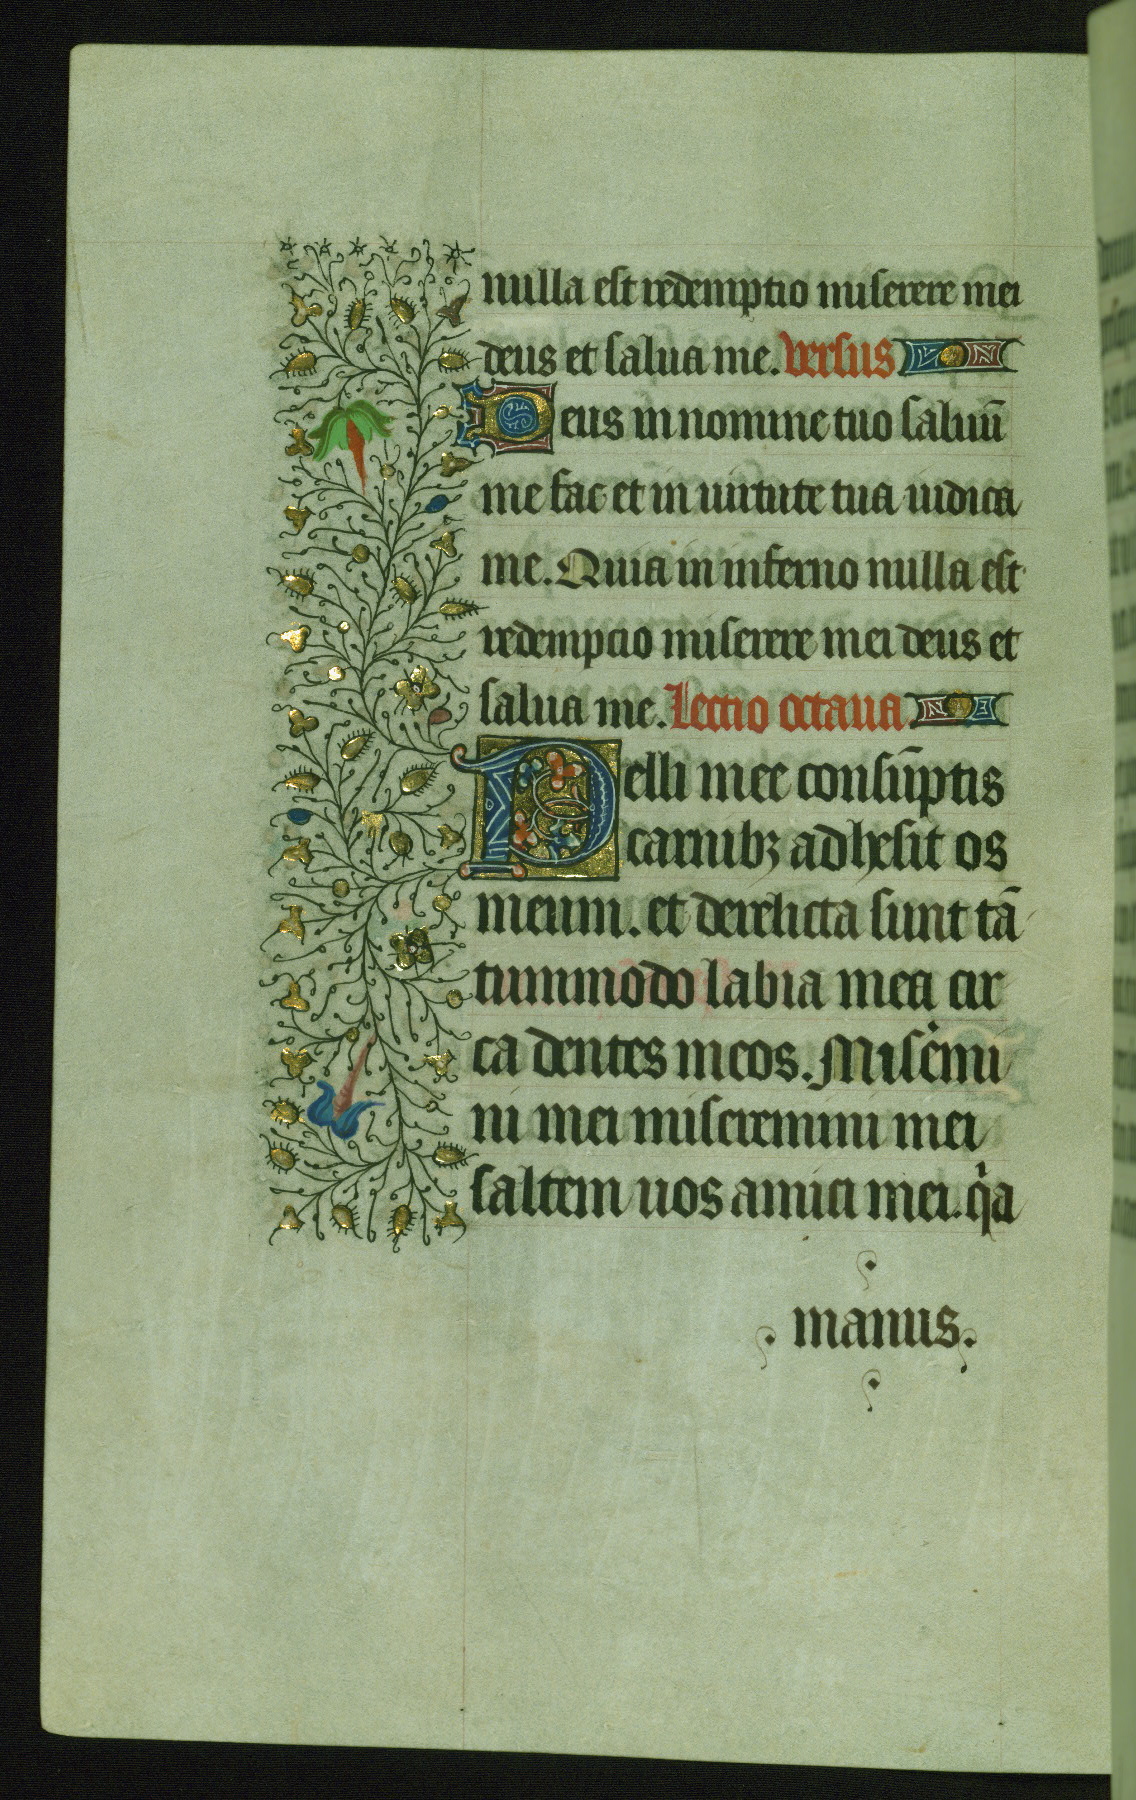 nulla est redemptio miserere mei
deus et salua me. Versus
Deus in nomine tuo saluū
me fac et in uirtute tua iudica
me. Quia in inferno nulla est
redempcio miserere mei deus et
salua me. Lectio octaua
Pelli mee consūptis
carnibꝫ adhesit os
meum. et derelicta sunt tā
tummodo labia mea cir
ca dentes meos. Misēmi
ni mei miseremini mei
saltem uos amici mei. qia
manus.